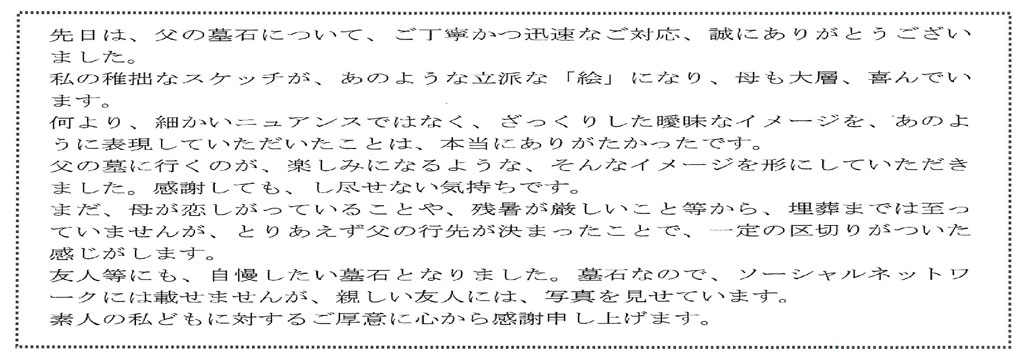 先日は、父の墓石について、ご丁寧かつ迅速なご対応、誠にありがとうござい
ました。
私の稚拙なスケッチが、あのような立派な「絵」になり、母も大層、喜んでい
ます。
何より、細かいニュアンスではなく、ざっくりした曖昧なイメージを、あのよ
うに表現していただいたことは、本当にありがたかったです。
父の墓に行くのが、楽しみになるような、そんなイメージを形にしていただき
ました。感謝しても、し尽せない気持ちです。
まだ、母が恋しがっていることや、残暑が厳しいこと等から、埋葬までは至っ
ていませんが、とりあえず父の行先が決まったことで、一定の区切りがついた
感じがします。
友人等にも、自慢したい墓石となりました。墓石なので、ソーシャルネットワ
ークには載せませんが、親しい友人には、写真を見せています。
素人の私どもに対するご厚意に心から感謝申し上げます。